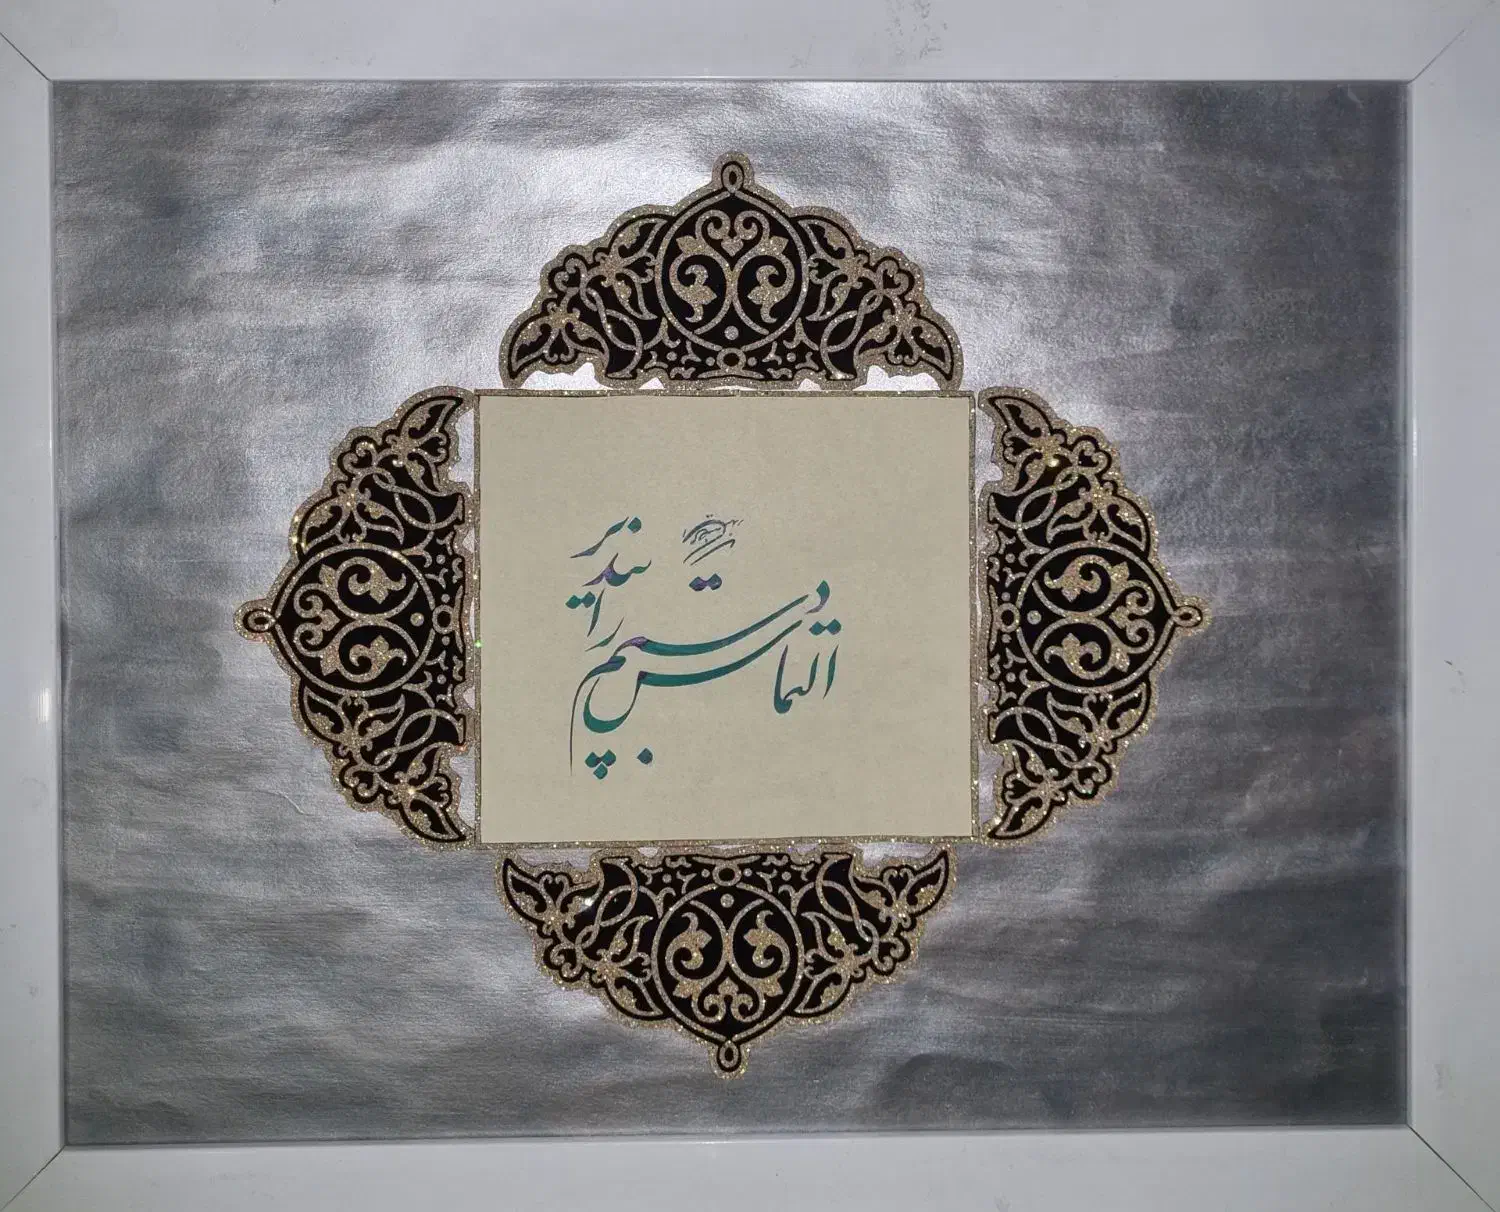 التماس دستم را بپذیر